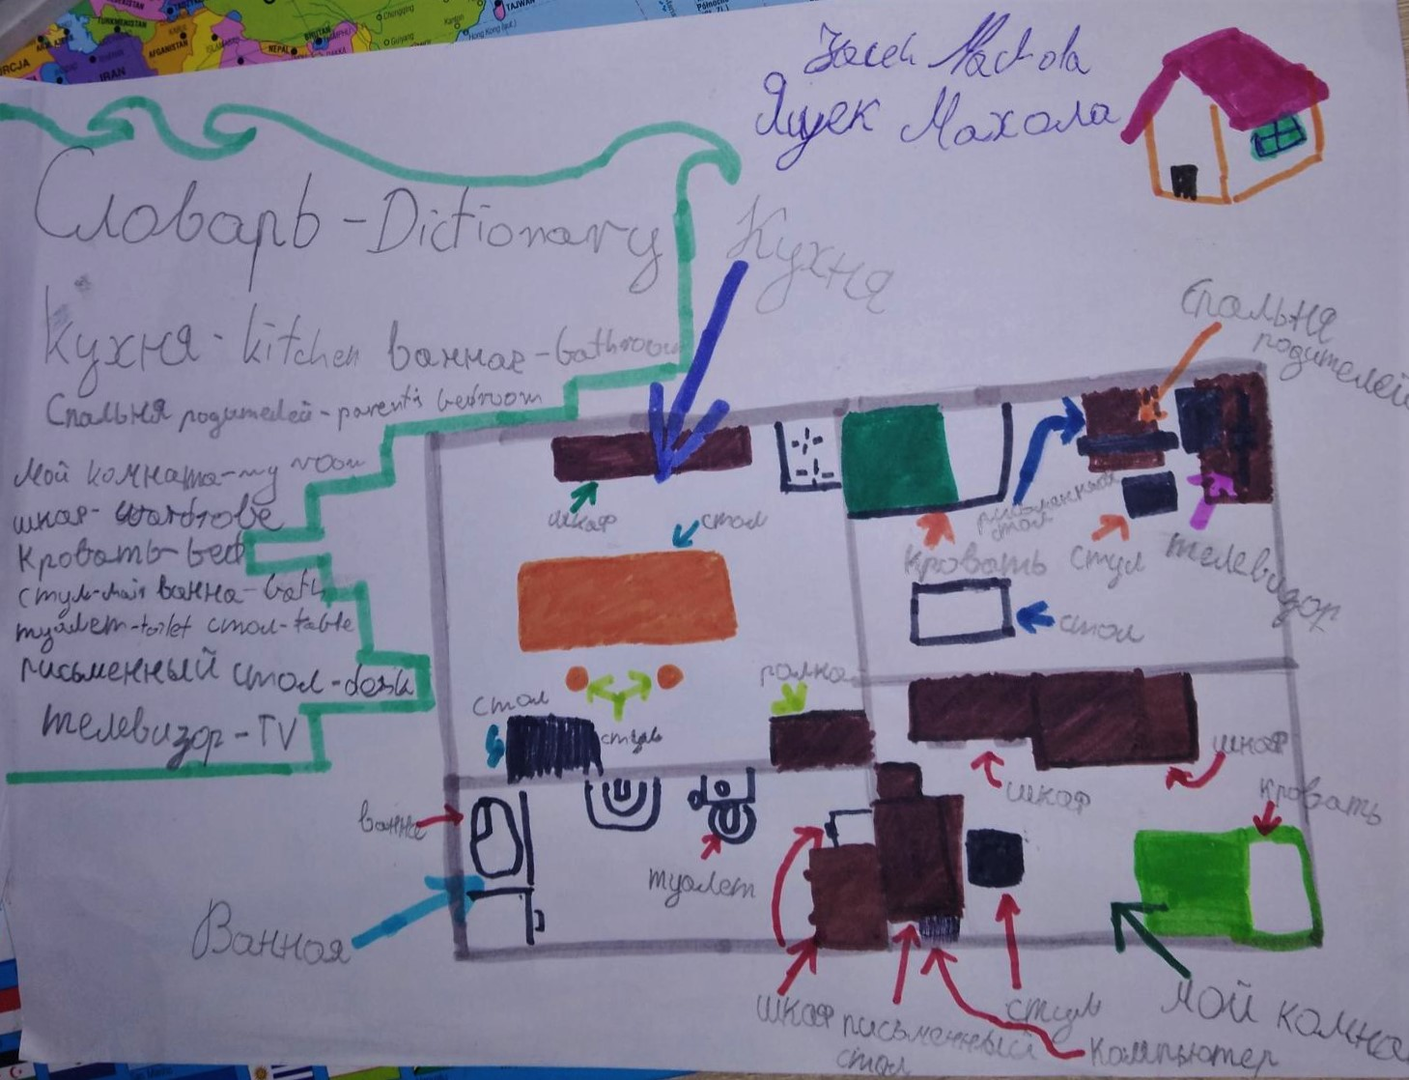 IRAN
AFGANISTAN
NEPAL
TAJWAN
Hong Kong
Jacek Machola
Яцек Махола
Словарь - Dictionary
Кухня - kitchen ванная - bathroom
Спальня родителей - parent's bedroom
Мой комната - my room
шкаф - wardrobe
Кровать - bed
стул - ванна - bath
туалет - toilet стол - table
письменный стол - desk
телевизор - TV
Кухня
Спальня
родителей
шкаф
стол
стол
полка
кровать
письменный
стол
стул
телевизор
стол
шкаф
шкаф
кровать
ванна
туалет
Ванная
шкаф
письменный
стол
стул
компьютер
мой комна